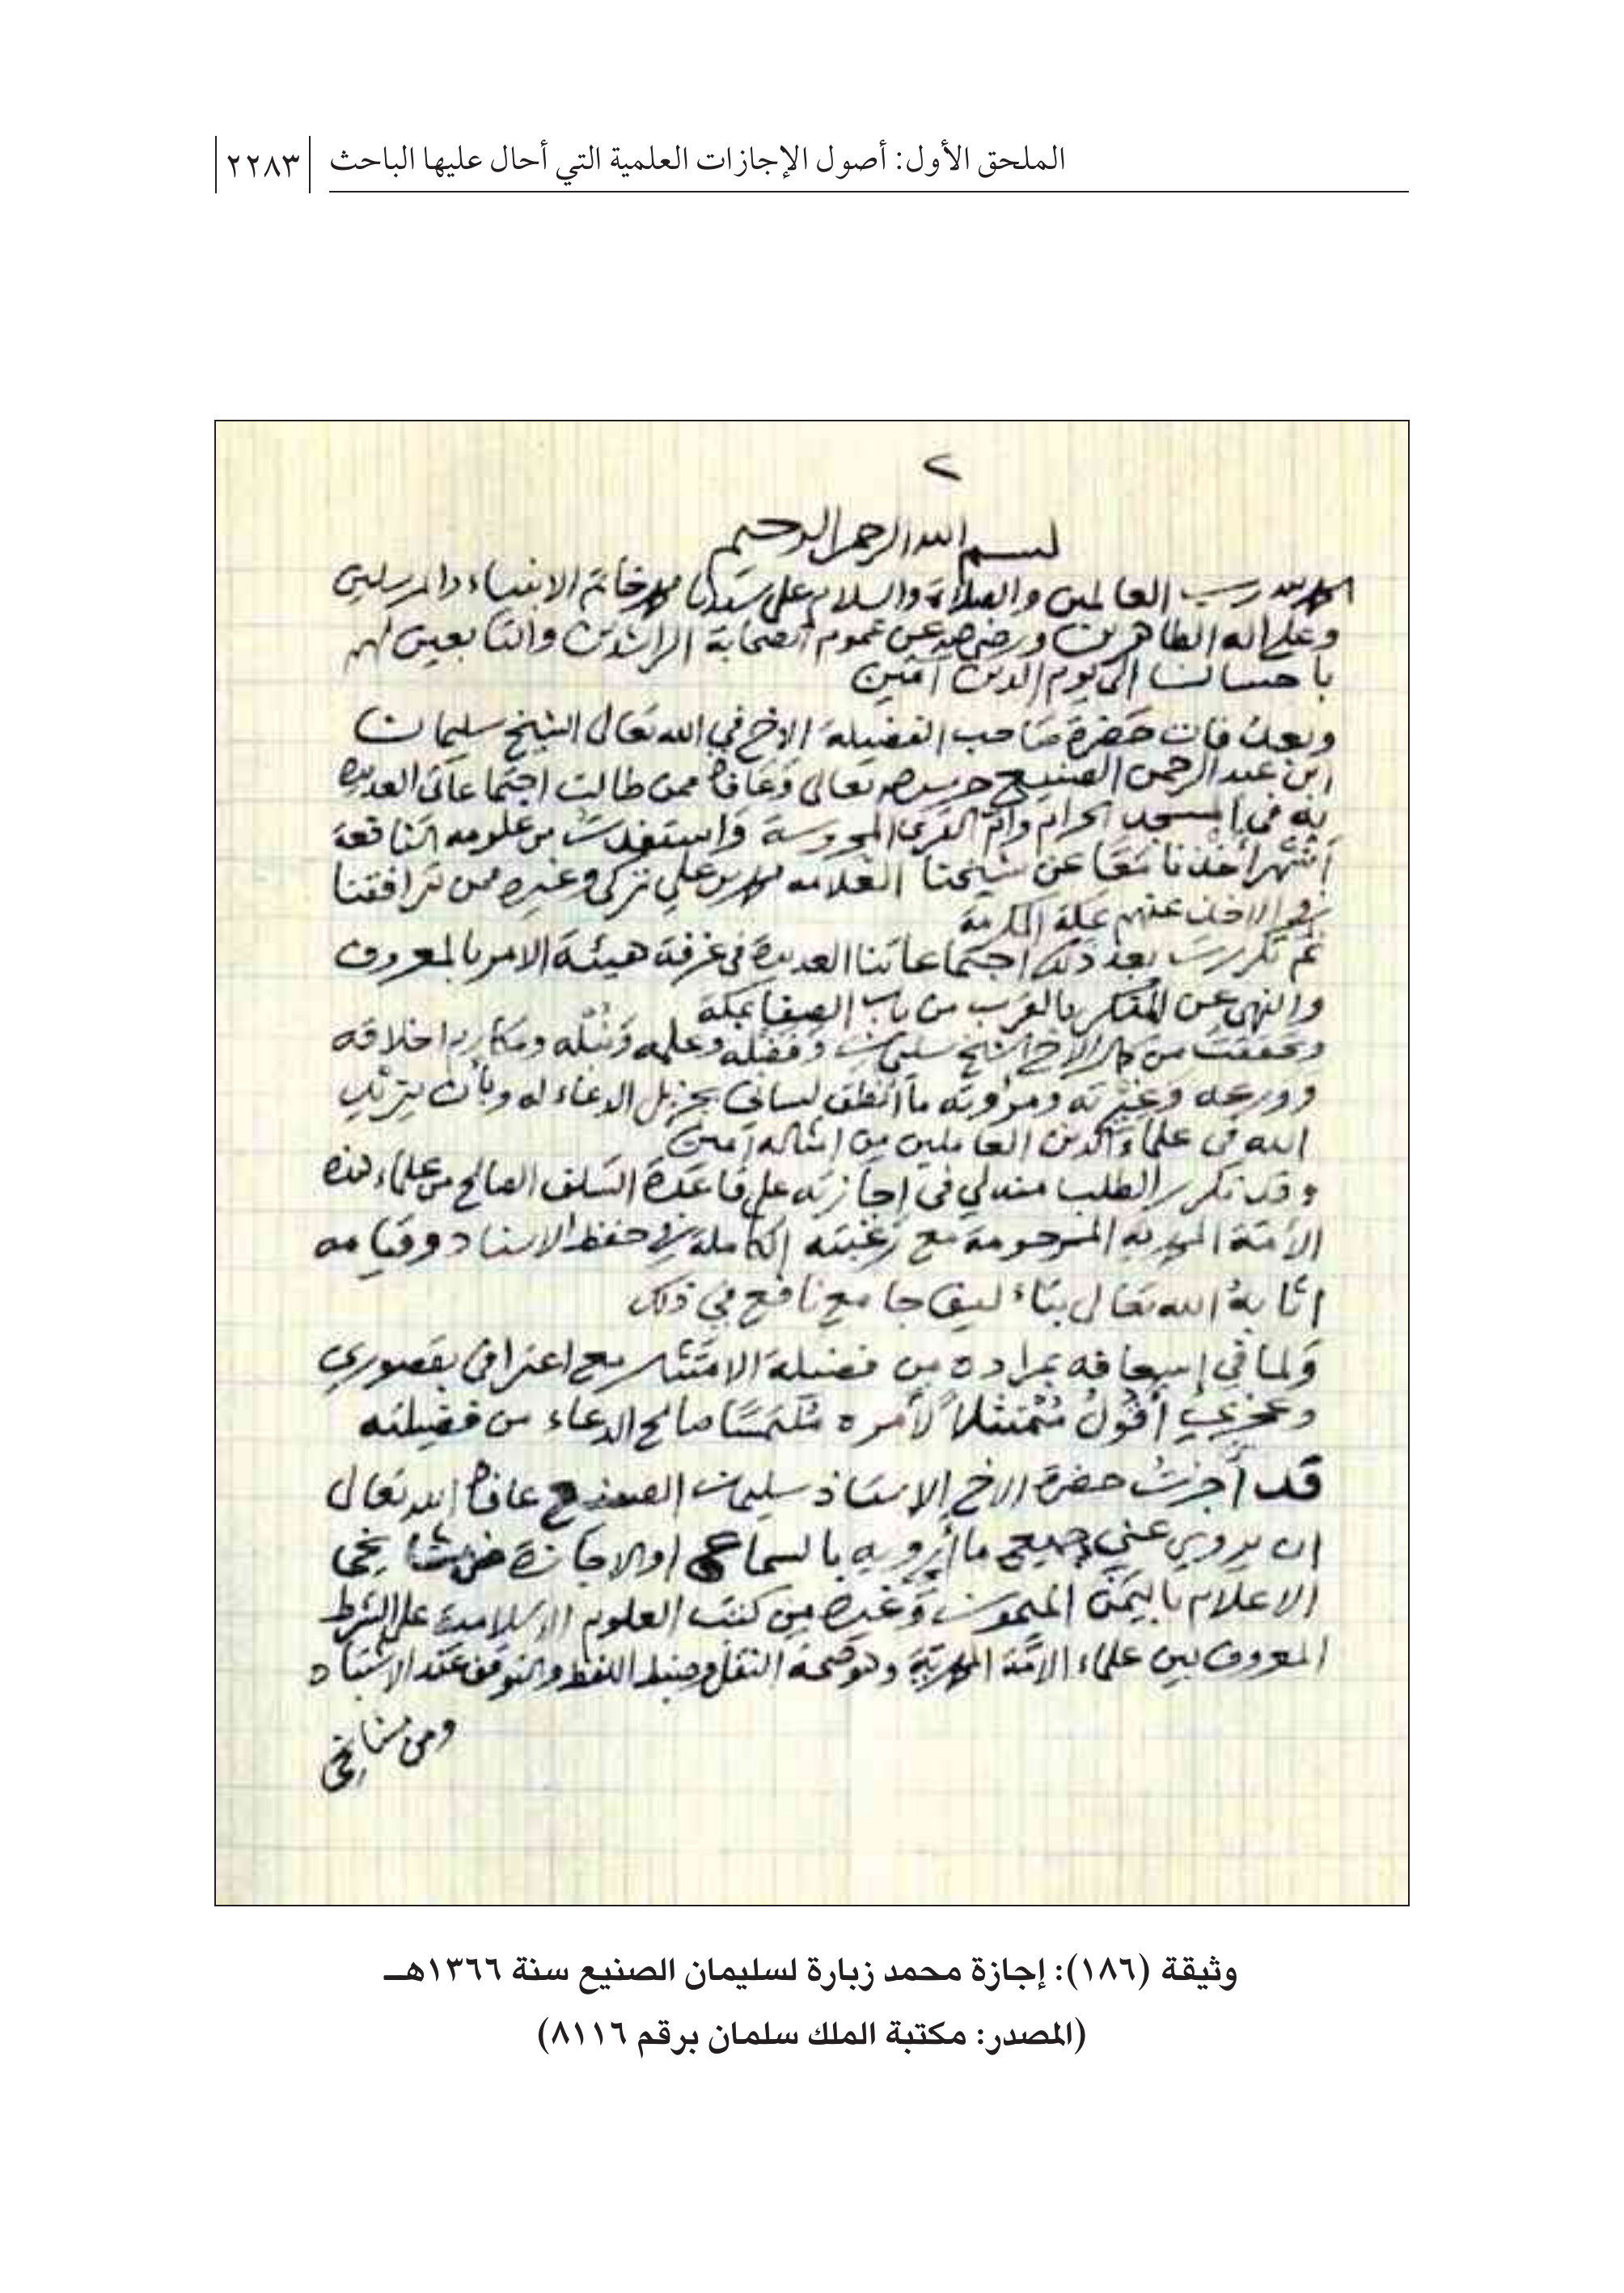 الملحق الأول: أصول الإجازات العلمية التي أحال عليها الباحث ٢٢٨٣
٢
بسم الله الرحمن الرحيم
الحمد لله رب العالمين والصلاة والسلام على سيدنا محمد خاتم الانبياء والمرسلين
وعلى اله الطاهرين ورضى الله عن عموم الصحابة الراشدين والتابعين لهم
باحسان الى يوم الدين آمين
وبعد فان حَضرة صَاحب الفضيلة الاخ في الله تعالى الشيخ سليمان
ابن عبد الرحمن الصنيع حرسه الله تعالى وعافاه ممن طالت اجتماعاتى العديدة
به فى المسجد الحرام وأم القرى المحروسة واستفدت من علومه النافعة
أشهرا أخذنا معا عن شيخنا العلامه محمد بن علي تركي وغيره ممن ترافقنا
في الاخذ عنهم بمكة المكرمة
ثم تكررت بعد ذلك اجتماعاتنا العديدة في غرفة هيئة الامر بالمعروف
والنهى عن المنكر بالقرب من باب الصفا بمكة
وتحققت من كمال الاخ الشيخ سليمان وفضله وعلمه ونبله ومكارم اخلاقه
وورعه وغيرته ومروءته ما أنطق لساني بجزيل الدعاء له وبأن يزيد
الله فى علماء الدين العاملين من امثاله آمين
وقد تكرر الطلب منه لي فى اجازته على قاعدة السلف الصالح من علماء هذه
الأمة المحمدية المرحومة مع رغبته الكاملة في حفظ الاسناد وقيامه
اثابهُ الله تعالى بثناء لبق جامع نافع في ذلك
ولما في إسعافه بمراده من فضيلة الامتثال مع اعترافى بقصوري
وعجزي أقولُ مُمْتثلاً لأمره مُلتمسًا صالح الدعاء من فضيلته
قد أجزتُ حضرة الاخ الاستاذ سليمان الصنيع عافاه الله تعالى
ان يروي عني جميع ما أرويه بالسماع او الاجازة عن مشايخى
الاعلام باليَمَن الميمون وغيره من كتب العلوم الاسلامية على الشرط
المعروف بين علماء الامّة المحمدية وهو صحة النقل وضبط اللفظ والتوقف عند الاشتباه
ومن مشايخى
وثيقة (١٨٦): إجازة محمد زبارة لسليمان الصنيع سنة ١٣٦٦هـ
(المصدر: مكتبة الملك سلمان برقم ٨١١٦)